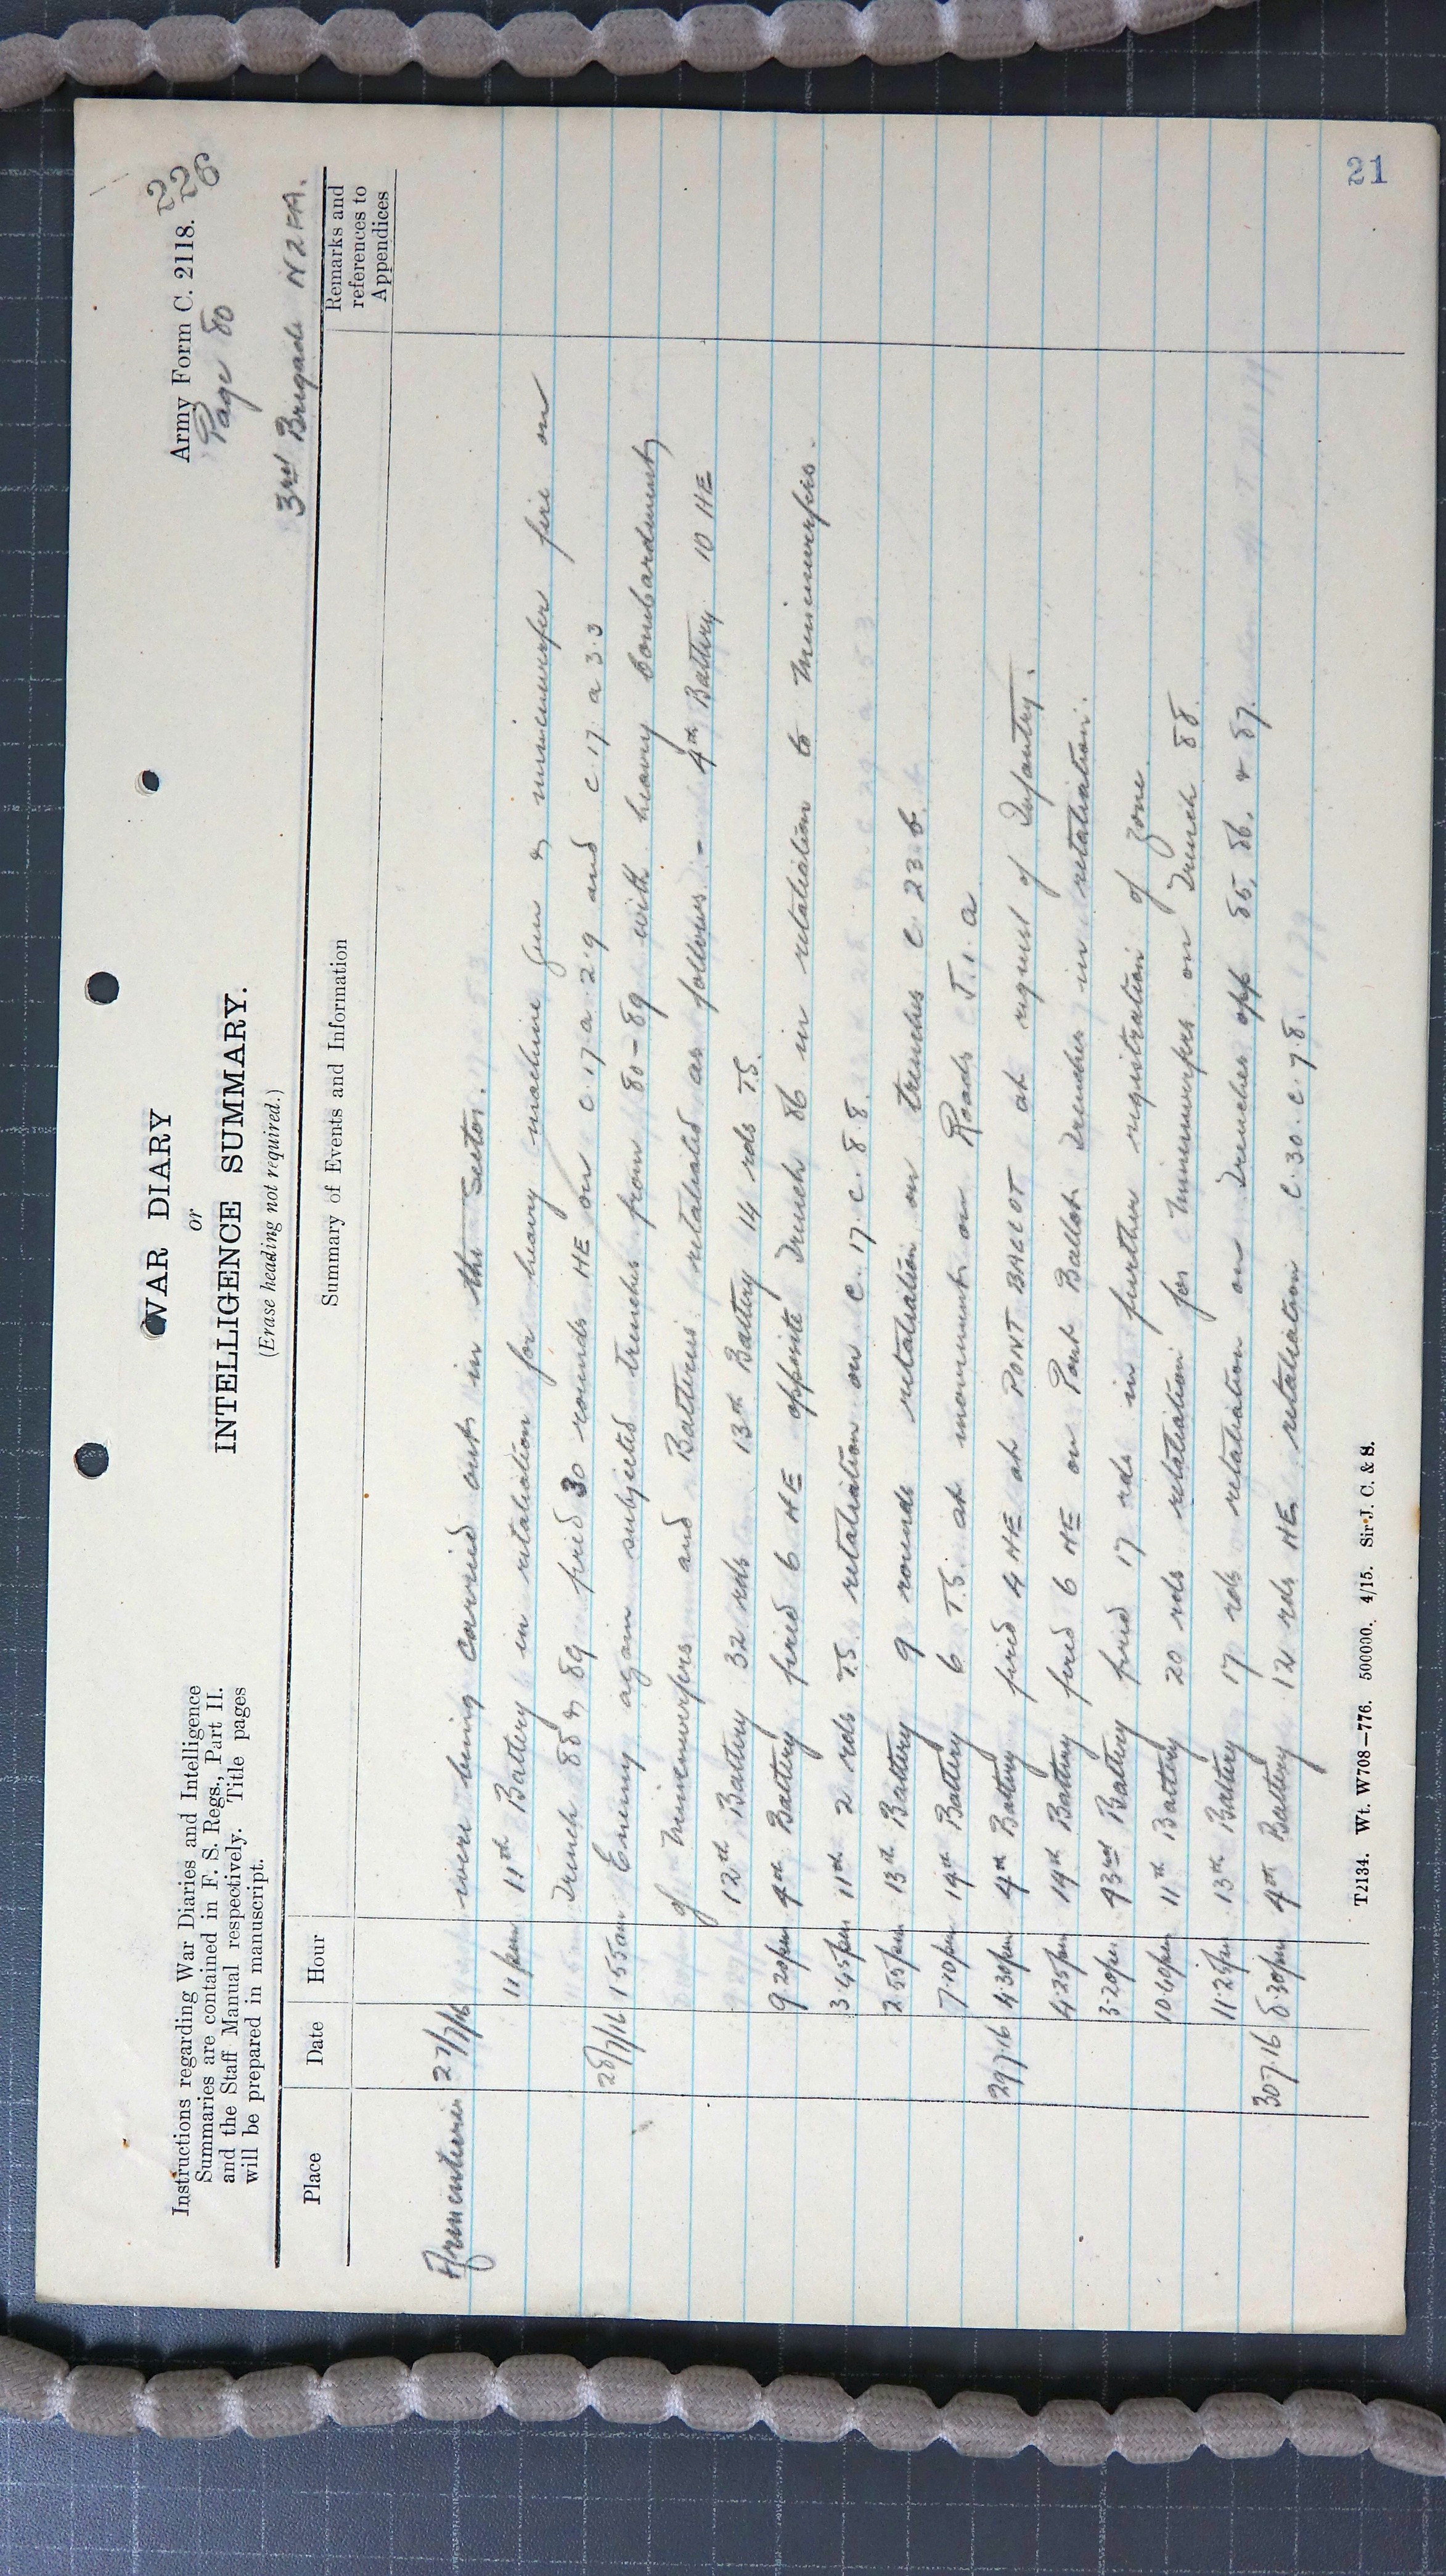 Army Form C. 2118.
226
Page 80
3rd Brigade NZFA.
WAR DIARY
or
INTELLIGENCE SUMMARY.
(Erase heading not required.)
Instructions regarding War Diaries and Intelligence
Summaries are contained in F. S. Regs., Part II.
and the Staff Manual respectively. Title pages
will be prepared in manuscript.
Place Date Hour Summary of Events and Information Remarks and references to Appendices
Armentieres 27/7/16 were being carried out in the Sector.
11 pm 11th Battery in retaliation for heavy machine gun & minenwerfer fire on
Trench 88 & 89 fired 30 rounds HE on C.17.a.2.9 and C.17.a 3.3
28/7/16 1.55am Enemy again subjected trenches from 80-89 with heavy bombardment
of Minenwerfers and Batteries retaliated as follows:- 4th Battery 10 HE
12th Battery 32 rds 13th Battery 14 rds T.S.
9.20pm 4th Battery fired 6 HE opposite Trench 86 in retaliation to Minenwerfers.
3.45pm 11th 2 rds T.S. retaliation on C.17.c.8.8.
2.55pm 13th Battery 9 rounds retaliation on trenches C.23.b.
7.10pm 14th Battery 6 T.S. at movement on Roads J.1.a
29.7.16 4.30pm 4th Battery fired 4 HE at PONT BALLOT at request of Infantry.
4.25pm 14th Battery fired 6 HE on Pont Ballot Trenches in retaliation.
3.20pm 43rd Battery fired 17 rds in further registration of zone.
10.40pm 11th Battery 20 rds retaliation for Minenwerfers on Trench 88.
11.25pm 13th Battery 17 rds retaliation on Trenches opp 85, 86, & 87.
30.7.16 8.30pm 4th Battery 12 rds HE retaliation C.30.c.7.8.
T2134. Wt. W708—776. 500000. 4/15. Sir J. C. & S.
21